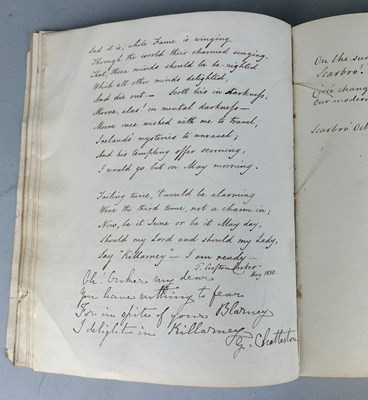 Sad it is, while Fame is winging
Through the world their charmed singing,
That, those minds should be be-nighted
Which all other minds delighted,
And die out — Scott lies in darkness,
Moore, alas! in mental darkness —
Moore once wished with me to travel,
Ireland's mysteries to unravel,
And his tempting offer scorning,
I would go but on May morning.
Failing twice, 'twould be alarming
Were the third time, not a charm in;
Now, be it June or be it May day,
Should my Lord and should my Lady,
Say "Killarney" — I am ready —
T. Crofton Croker
May 1850.
Oh! Croker my dear
You have nothing to fear
For in spite of your Blarney
I delight in Killarney
G. Chatterton
On the su
Scarbro'
chang
Our modern
Scarbro' Oct